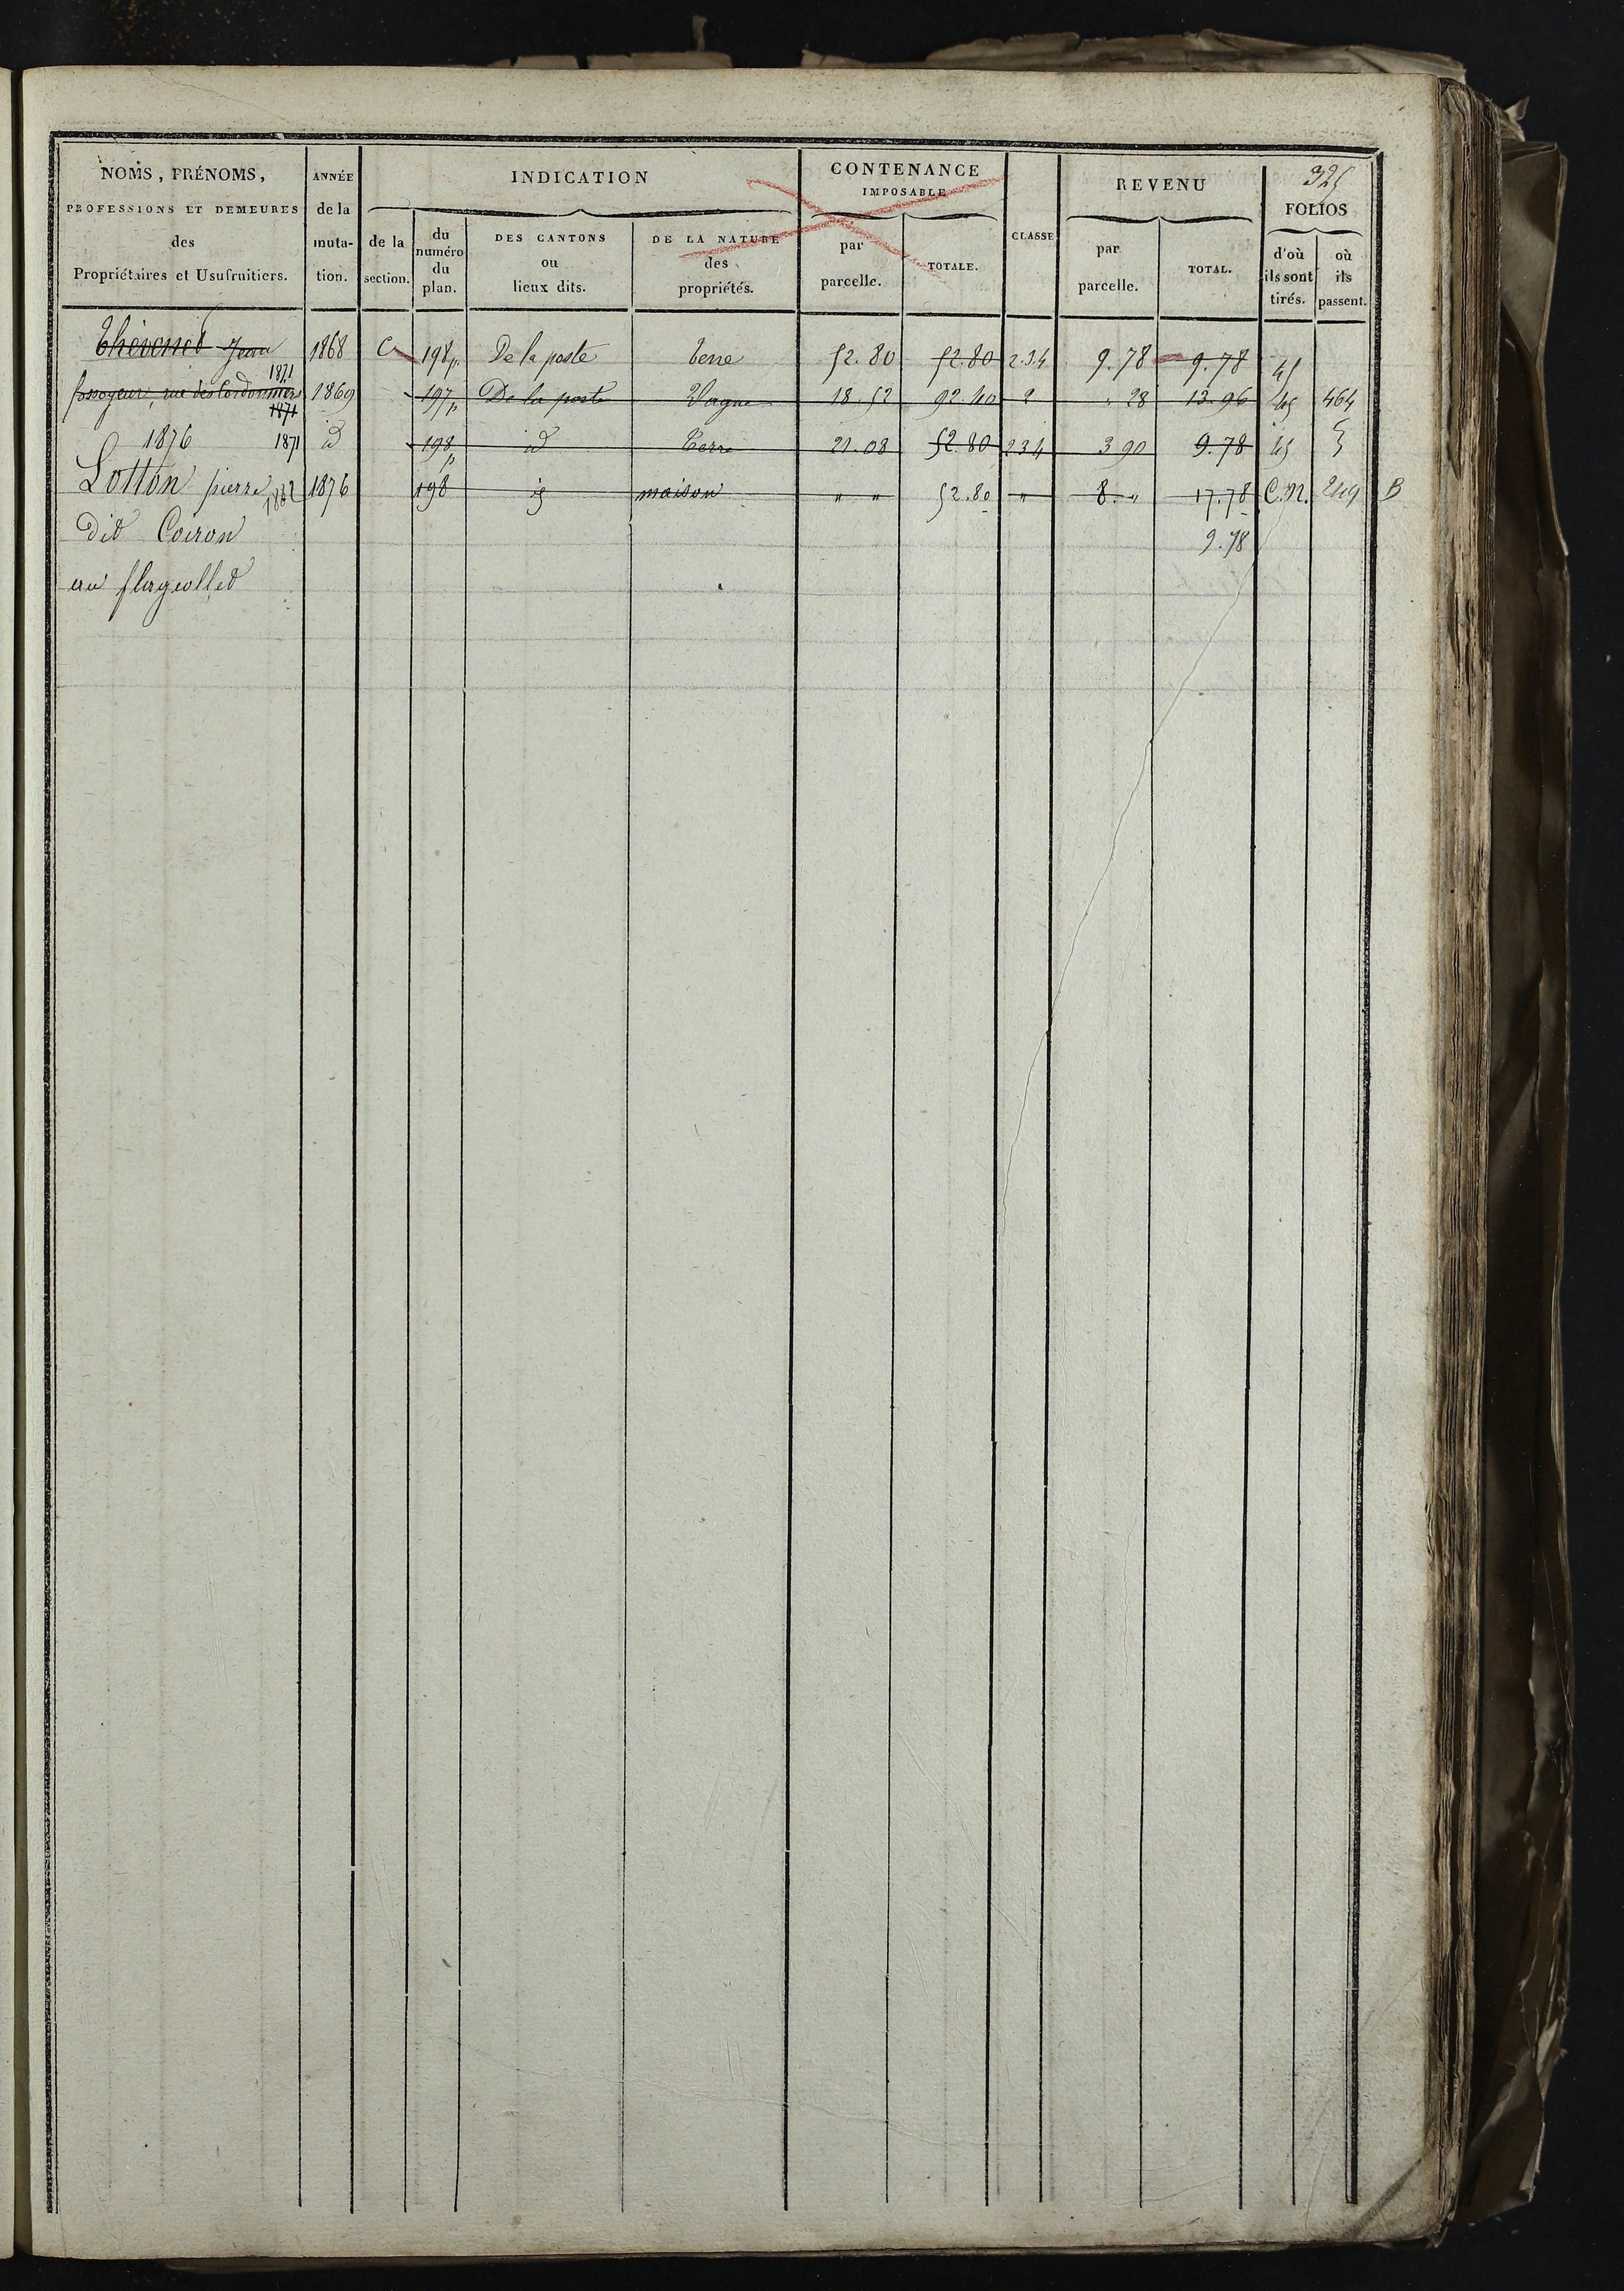 325
NOMS, PRÉNOMS,
PROFESSIONS ET DEMEURES
des
Propriétaires et Usufruitiers.
ANNÉE
de la
muta-
tion.
INDICATION
de la
section.
du
numéro
du
plan.
DES CANTONS
ou
lieux dits.
DE LA NATURE
des
propriétés.
CONTENANCE
IMPOSABLE
par
parcelle.
TOTALE.
CLASSE
REVENU
par
parcelle.
TOTAL.
FOLIOS
d'où
ils sont
tirés.
où
ils
passent.
Thévenet Jean 1868 C 198p. De la poste terre 52.80 52.80 2.3.4 9.78 9.78 45
1871
fossoyeur, rue des Cordonniers 1869 197p De la poste Vague 18.52 92.40 2 " 28 13.96 45 464
1871
1876 1871 id 198p id Terre 21.08 52.80 234 3 90 9.78 45
Lotton pierre 1882 1876 198 id maison " " 52.80 " 8. " 17.78 C.N. 249 B
dit Coiron 9.78
au flageollet